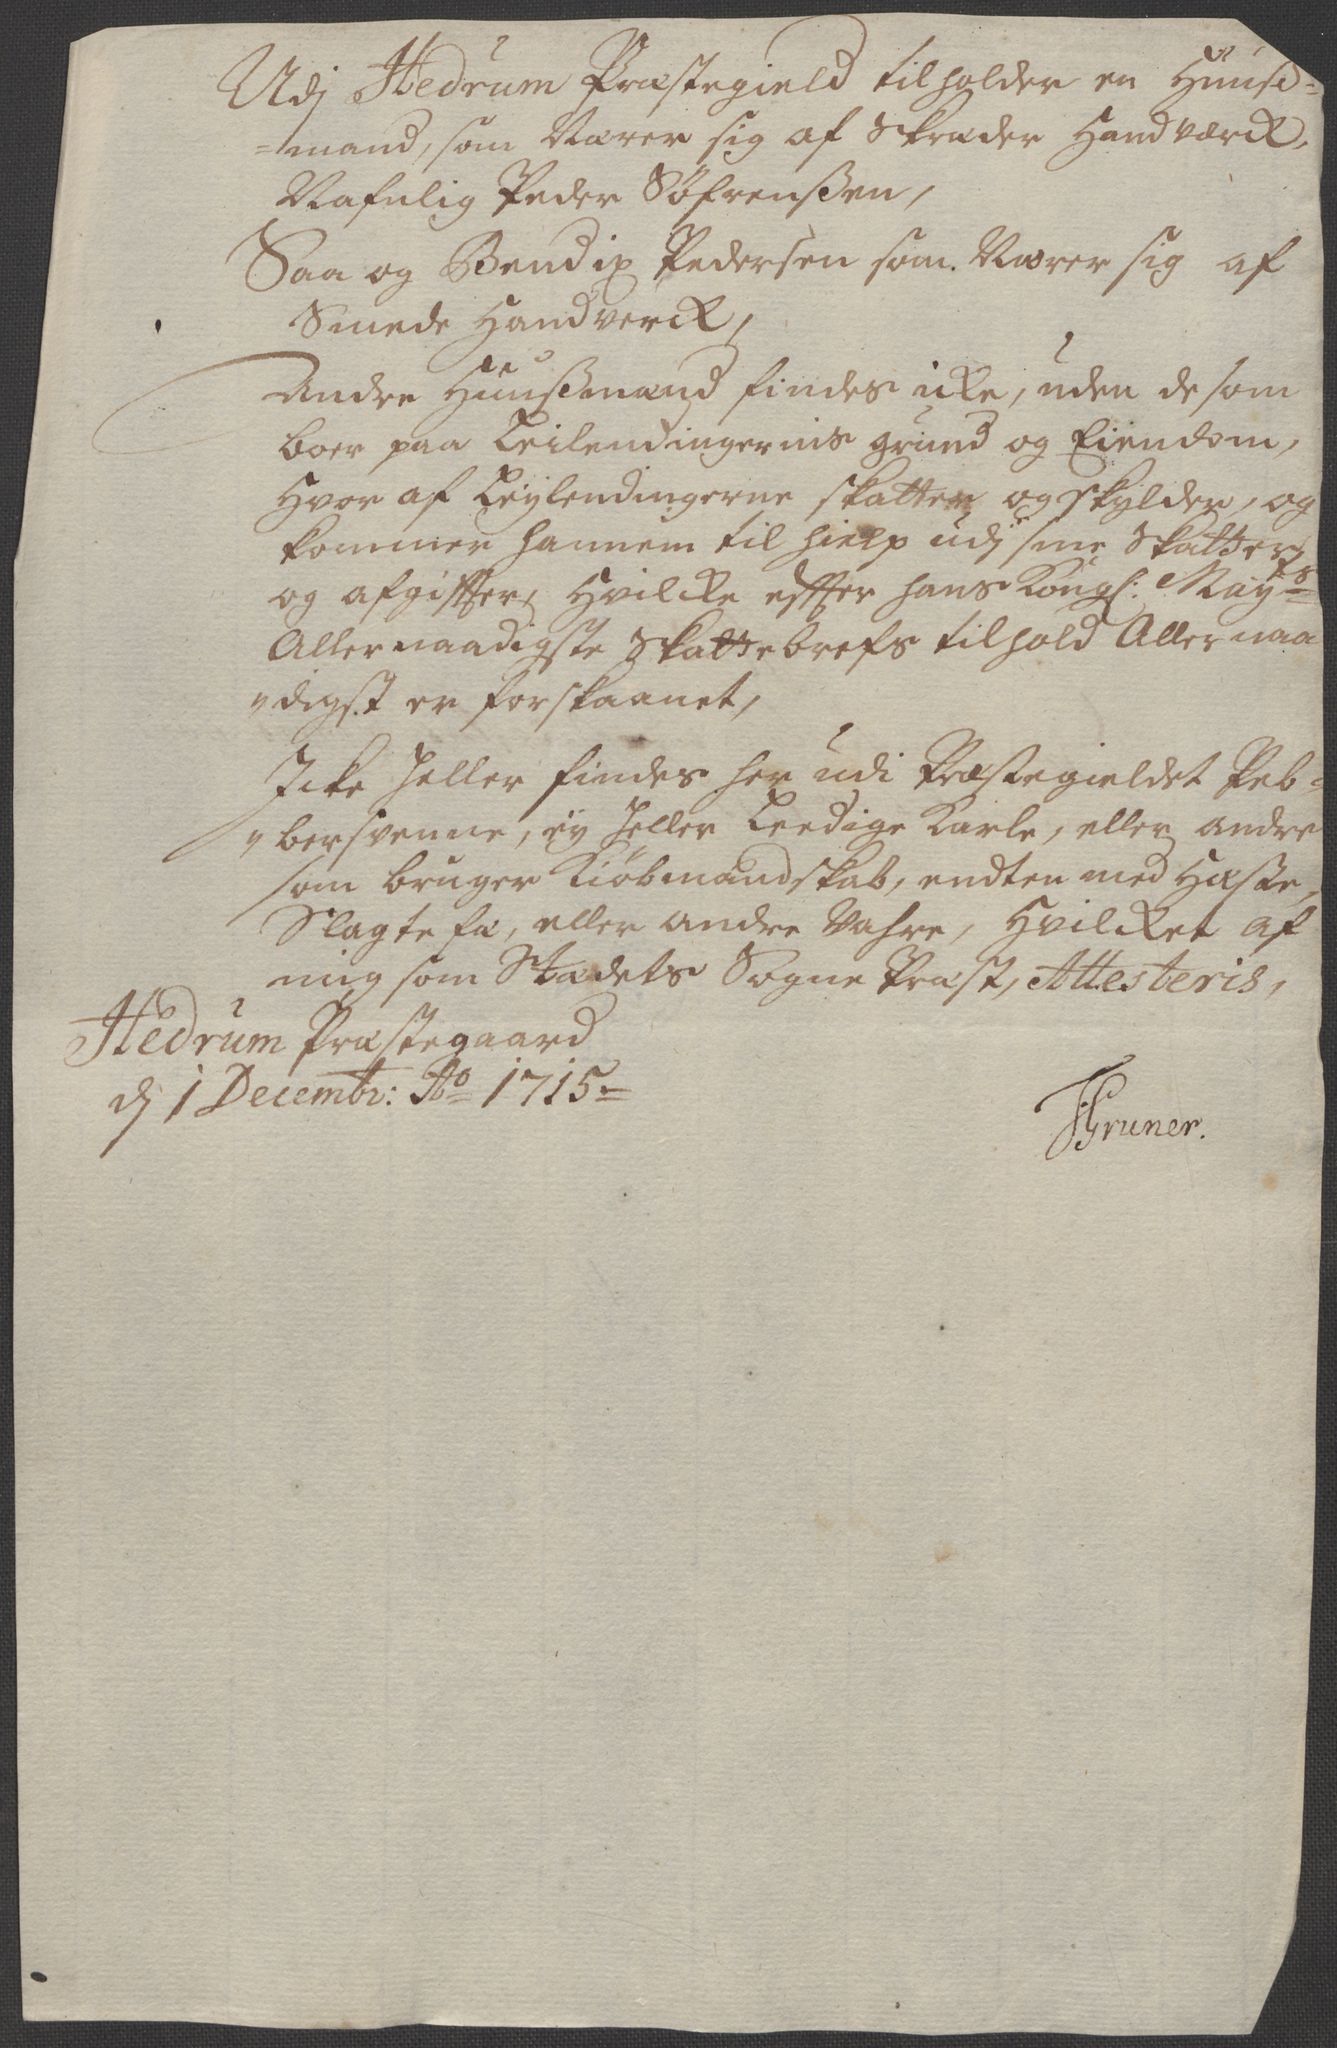 Udj Hedrum Præstegield tilholder en Huus=
=mand, som Nærer sig af Skræder Handværck,
Nafnlig Peder Söfrenßen,
Saa og Bendix Pedersen som Nærer sig af
Smede Handverck,
Andre Huußmænd findes icke, uden de som
boer paa Leilendingernis grund og Eiendom,
Hvor af Leylendingerne skatter og skylder, og
kommer hannem til hielp udj sine Skatter
og afgiffter, Hvilcke effter hans Kongl: Mayts=
Allernaadigste Skattebrefs tilhold Allernaa
"digst er forskaanet,
Icke heller findes her udi Præstegieldet Peb=
"bersvenne, ey heller Leedige Karle, eller andre
som bruger Kiöbmandskab, endten med Hæste,
Slagtefæ, eller andre Vahre, Hvilcket af
mig som Stædets Sogne Præst, Attesteris,
Hedrum Præstegaard
dj 1 Decembr: Ao= 1715=
Gruner.